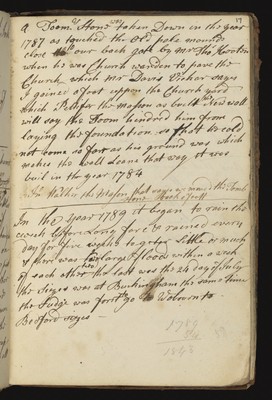 17
a Toom Stone was taken Down in the year
1787 as touched the Old pale mounds
close our back gate by Mr Tho
when he was Church warden to pave the
Church which Mr Davis Vickar says
I gained a foot upon the Church yard
which Pettifer the Masson as built the new wall
will say the Toom hindred him from
laying the foundation so that he cold
not come so far as his ground was which
makes the wall leane that way it was
built in the year 1784
the Mason that was at the Tomb
Stone
In the year 1789 it began to rain the
week before Long fare & rained every
day for five weeks to gether Little or much
& there was two large flood within a week
of each other the last was the 24 day of July
the sizes was at Buckingham the same time
the Judge was forst to go to
Bedford sizes
1789
54
1843